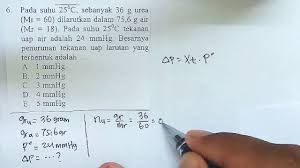 6. Pada suhu 25°C, sebanyak 36 g urea
(Mr = 60) dilarutkan dalam 75,6 g air
(Mr = 18). Pada suhu 25°C tekanan
uap air adalah 24 mmHg. Besarnya
penurunan tekanan uap larutan yang
terbentuk adalah ....
A. 1 mmHg
B. 2 mmHg
C. 3 mmHg
D. 4 mmHg
E. 5 mmHg
ΔP = Xt . P°
gru = 36 gram
gra = 75,6 gr
P° = 24 mmHg
ΔP = ...?
nu = gr/Mr = 36/60 = 0